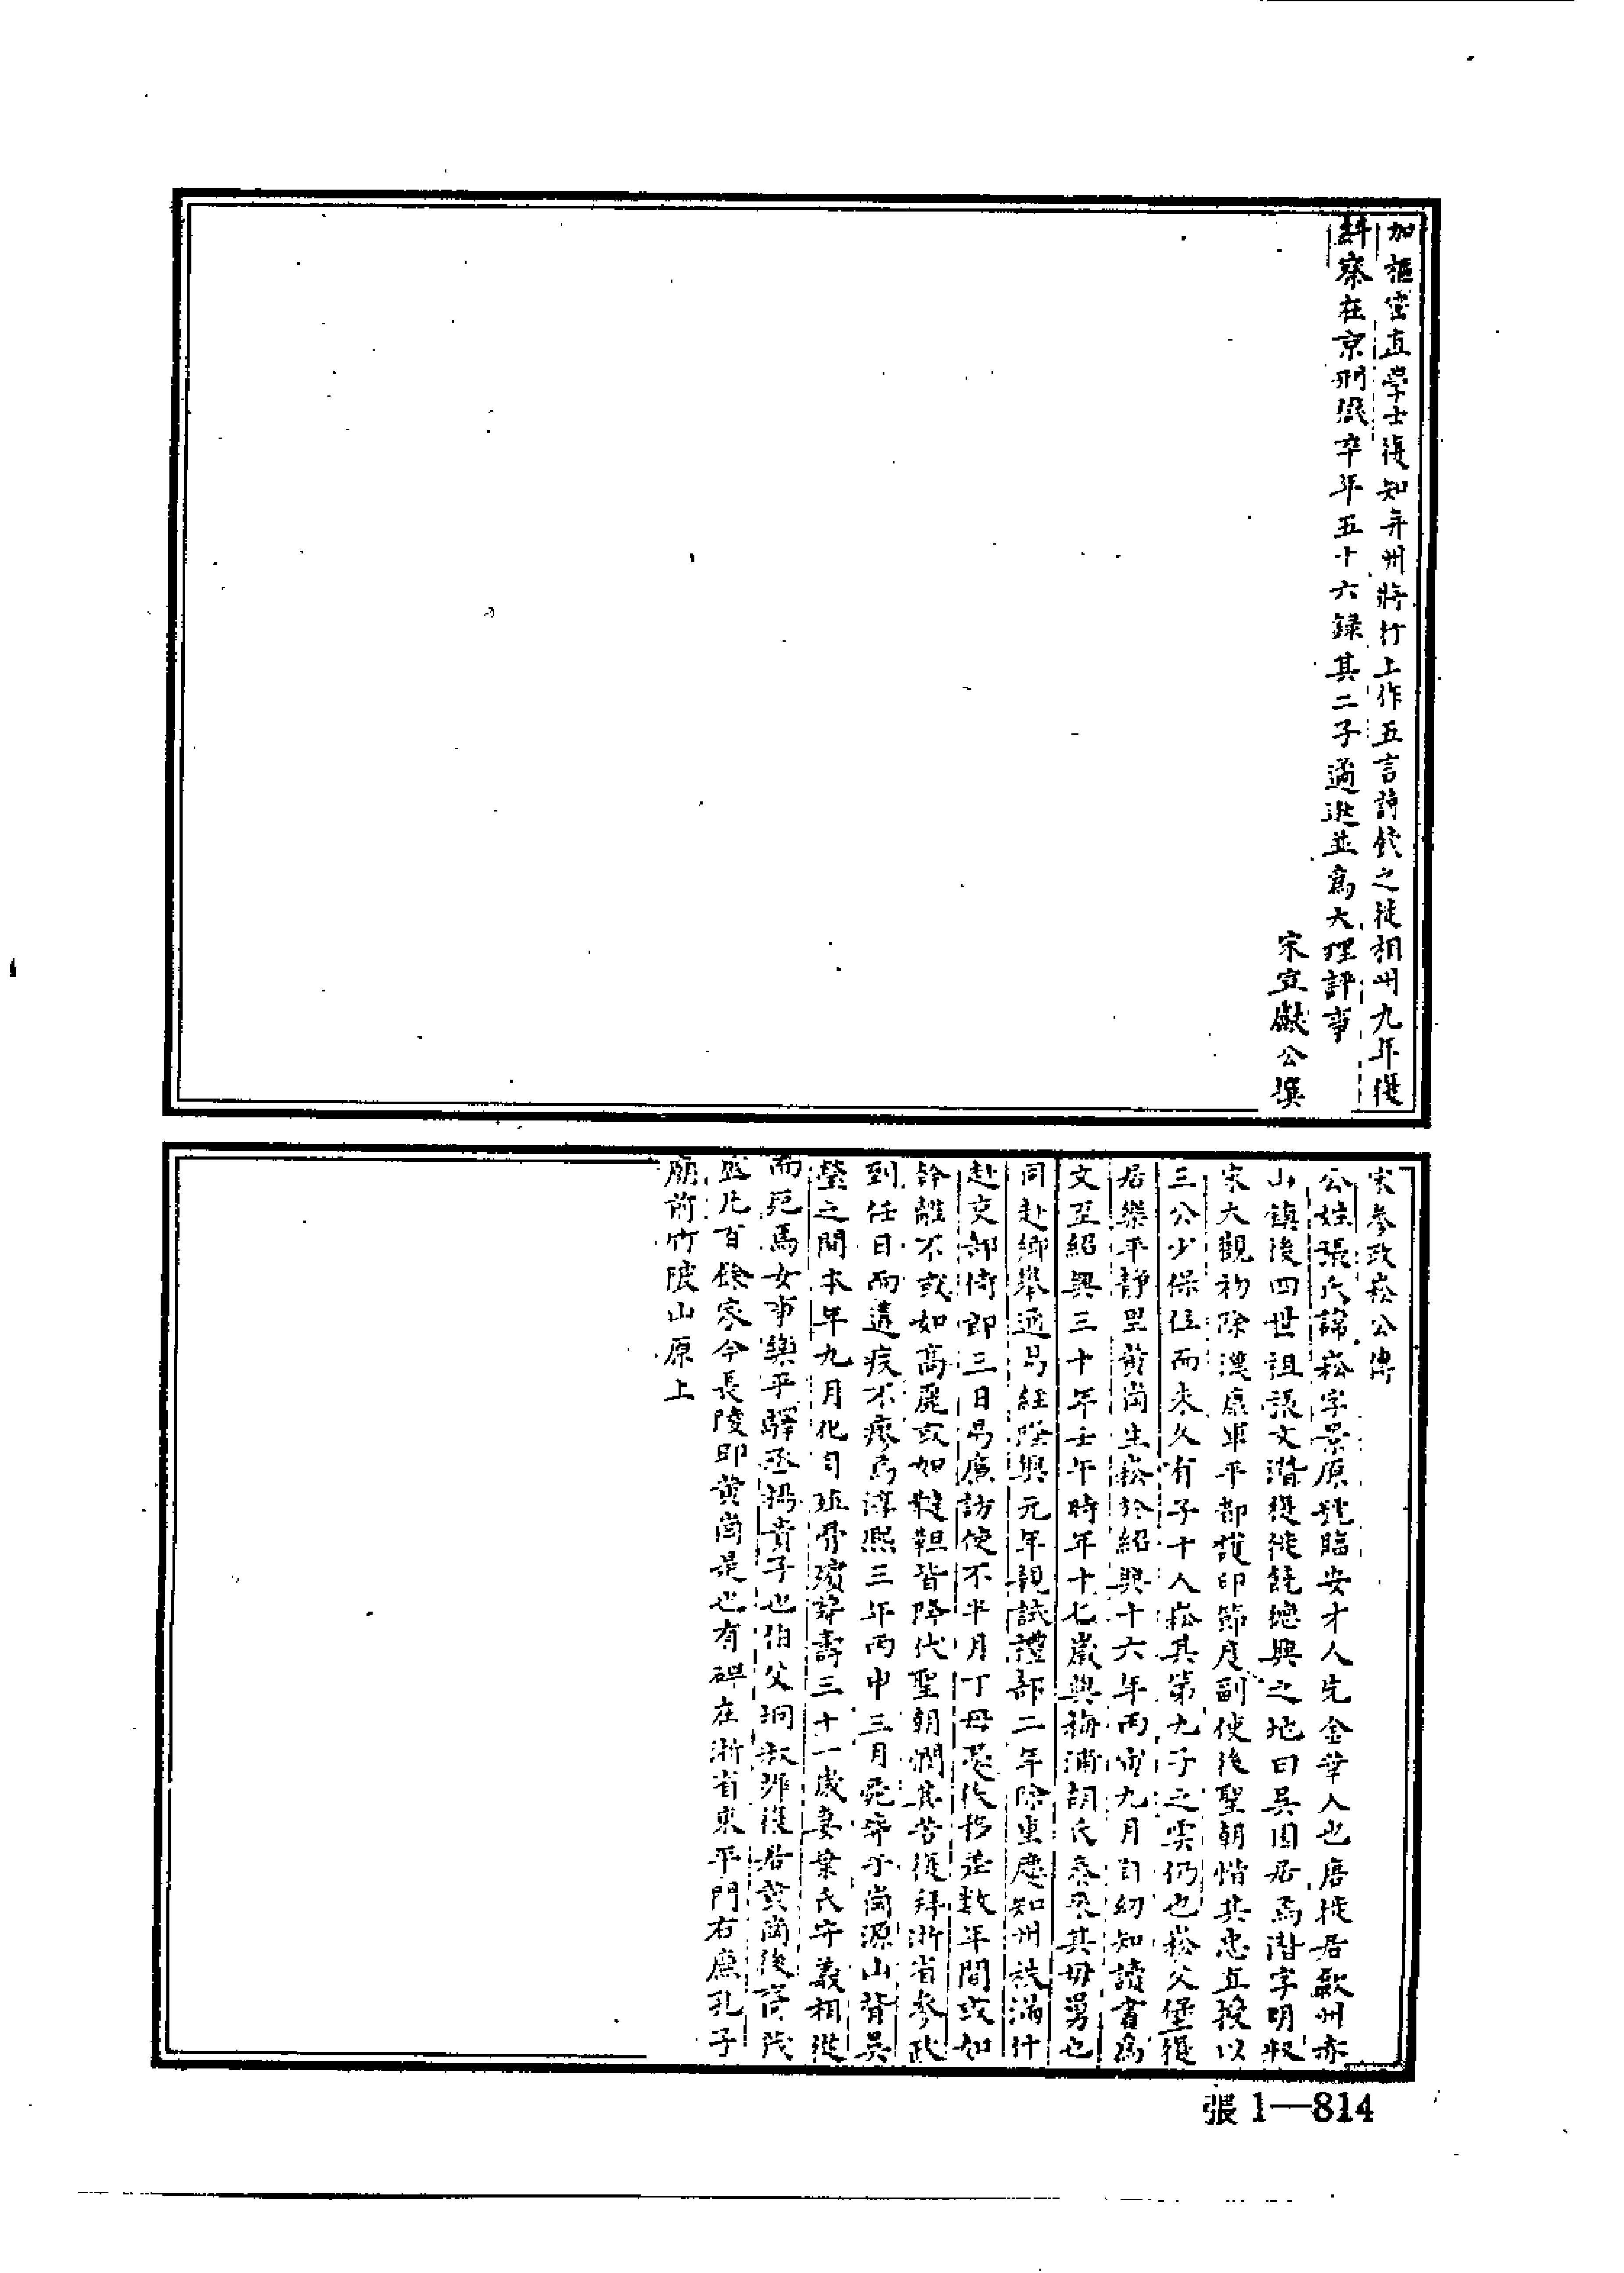 加樞密直學士復知并州將行上作五言詩餞之徙相州九年復
糾察在京刑獄卒年五十六録其二子適遜並爲大理評事
宋宣獻公撰
宋參政崧公傳
公姓張氏諱崧字景原號臨安才人先金華人也唐徙居歙州赤
山鎮後四世祖張文潛復徙饒德興之地曰吳園居焉潛字明叔
宋大觀初除漢康軍平都護印節度副使後聖朝惜其忠直授以
三公少保位而未久有子十人崧其第九子之雲仍也崧父堡復
居樂平靜里黃崗生崧於紹興十六年丙寅九月自幼知讀書爲
文至紹興三十年壬午時年十七歲與梅浦胡氏泰來其母舅也
同赴鄉舉通易經陞興元年親試禮部二年除重慶知州秩滿什
赴吏部侍郎三日易廣訪使不半月丁母憂後移莅數年間或如
幹離不或如高麗或如韃靼皆降伏聖朝憫其苦復拜浙省參政
到任日而遘疾不瘳爲淳熙三年丙申三月薨寄于崗源山背吳
塋之間本年九月化司班骨殯葬壽三十一歲妻葉氏守義相從
而死焉女事樂平驛丞楊貴子也伯父垌叔鄉復居黃崗後裔茂
盛凡百餘家今長陵即黃崗是也有碑在浙省東平門右廡孔子
廟前竹陂山原上
張1—814